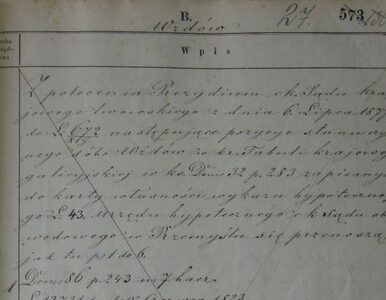 B.
27.
573
Wzdów
Wpis
Z polecenia Prezydium ck. Sądu kra
jowego lwowskiego z dnia 6. Lipca 187
do L 672 następujące pozycye stanu
nego dóbr Wzdów z kr. Tabuli krajowej
galicyjskiej w ks. Dom 32 p. 283 zapisany
do karty własności wykazu hypoteczne
go L 43. Urzędu hypotecznego ck Sądu ob
wodowego w Przemyślu się przenoszą
jak tu p: 1 do 6.
1 Dom: 86 p. 243 n 7 haer.
1823